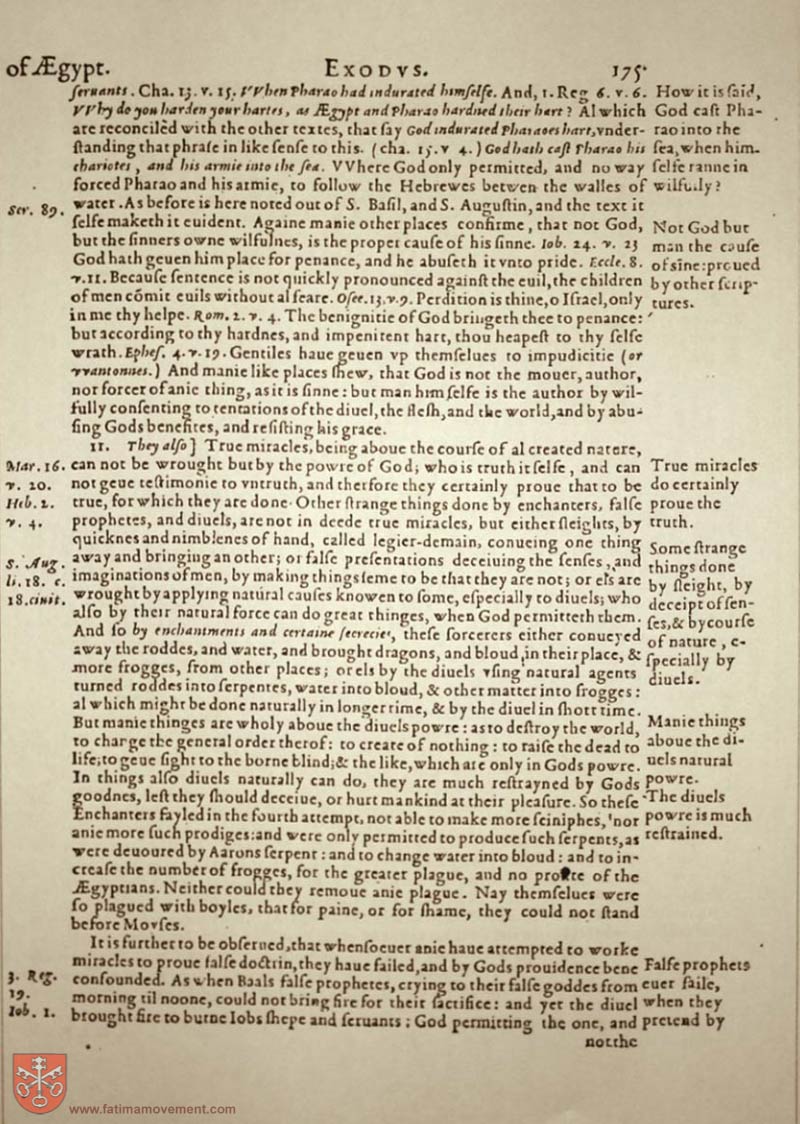 of Ægypt.
EXODVS.
175.
ſeruants. Cha. 13. v. 15. VVhen Pharao had indurated himſelfe. And, 1. Reg 6. v. 6.
VVhy do you harden your hartes, as Ægypt and Pharao hardned their hart? Al which
are reconciled with the other textes, that ſay God indurated Pharaoes hart, vnder-
ſtanding that phraſe in like ſenſe to this. (cha. 15. v 4.) God hath caſt Pharao his
chariotes, and his armie into the ſea. VVhere God only permitted, and no way
forced Pharao and his armie, to follow the Hebrewes betwen the walles of
water. As before is here noted out of S. Baſil, and S. Auguſtin, and the text it
ſelfe maketh it euident. Againe manie other places confirme, that not God,
but the ſinners owne wilfulnes, is the proper cauſe of his ſinne. Iob. 24. v. 23
God hath geuen him place for penance, and he abuſeth it vnto pride. Eccle. 8.
v. 11. Becauſe ſentence is not quickly pronounced againſt the euil, the children
of men cōmit euils without al feare. Oſee. 13. v. 9. Perdition is thine, o Iſrael, only
in me thy helpe. Rom. 2. v. 4. The benignitie of God bringeth thee to penance:
but according to thy hardnes, and impenitent hart, thou heapeſt to thy ſelfe
wrath. Epheſ. 4. v. 19. Gentiles haue geuen vp themſelues to impudicitie (or
vvantonnes.) And manie like places ſhew, that God is not the mouer, author,
nor forcer of anie thing, as it is ſinne: but man himſelfe is the author by wil-
fully conſenting to tentations of the diuel, the fleſh, and the world, and by abu-
ſing Gods benefites, and reſiſting his grace.
11. They alſo] True miracles, being aboue the courſe of al created nature,
can not be wrought but by the powre of God; who is truth it ſelfe, and can
not geue teſtimonie to vntruth, and therfore they certainly proue that to be
true, for which they are done. Other ſtrange things done by enchanters, falſe
prophetes, and diuels, are not in deede true miracles, but either ſleights, by
quicknes and nimblenes of hand, called legier-demain, conueing one thing
away and bringing an other; or falſe preſentations deceiuing the ſenſes, and
imaginations of men, by making things ſeme to be that they are not; or els are
wrought by applying natural cauſes knowen to ſome, eſpecially to diuels; who
alſo by their natural force can do great thinges, when God permitteth them.
And ſo by enchantments and certaine ſecrecies, theſe ſorcerers either conueyed
away the roddes, and water, and brought dragons, and bloud, in their place, &
more frogges, from other places; or els by the diuels vſing natural agents
turned roddes into ſerpentes, water into bloud, & other matter into frogges:
al which might be done naturally in longer time, & by the diuel in ſhort time.
But manie thinges are wholy aboue the diuels powre: as to deſtroy the world,
to charge the general order therof: to create of nothing: to raiſe the dead to
life; to geue ſight to the borne blind; & the like, which are only in Gods powre.
In things alſo diuels naturally can do, they are much reſtrayned by Gods
goodnes, leſt they ſhould deceiue, or hurt mankind at their pleaſure. So theſe
Enchanters fayled in the fourth attempt, not able to make more ſciniphes, nor
anie more ſuch prodiges: and were only permitted to produce ſuch ſerpents, as
were deuoured by Aarons ſerpent: and to change water into bloud: and to in-
creaſe the number of frogges, for the greater plague, and no profite of the
Ægyptians. Neither could they remoue anie plague. Nay themſelues were
ſo plagued with boyles, that for paine, or for ſhame, they could not ſtand
before Moyſes.
It is further to be obſerued, that whenſoeuer anie haue attempted to worke
miracles to proue falſe doctrin, they haue failed, and by Gods prouidence bene
confounded. As when Baals falſe prophetes, crying to their falſe goddes from
morning til noone, could not bring fire for their ſacrifice: and yet the diuel
brought fire to burne Iobs ſhepe and ſeruants; God permitting the one, and
not the
Ser. 89.
Mar. 16.
v. 20.
Heb. 2.
v. 4.
S. Aug.
li. 18. c.
18. ciuit.
3. Reg.
19.
Iob. 1.
How it is ſaid,
God caſt Pha-
rao into the
ſea, when him-
ſelfe ranne in
wilfully?
Not God but
man the cauſe
of sīne: proued
by other ſcrip-
tures.
True miracles
do certainly
proue the
truth.
Some ſtrange
things done
by ſleight, by
deceipt of ſen-
ſes, & by courſe
of nature, e-
ſpecially by
diuels.
Manie things
aboue the di-
uels natural
powre.
The diuels
powre is much
reſtrained.
Falſe prophets
euer faile,
when they
pretend by
www.fatimamovement.com